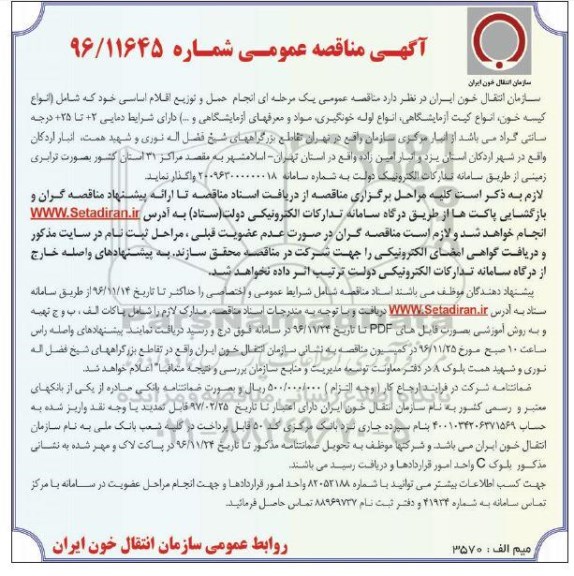 آگهـی مناقصه عمومـی شمـاره ۹۶/۱۱۶۴۵
سازمان انتقال خون ایران
سـازمان انتقال خون ایـران در نظـر دارد مناقصه عمومـی یـک مرحله ای انجـام حمل و توزیع اقلام اساسی خود کـه شامل (انواع
کیسه خون، انواع کیت آزمایشگاهی، انواع لوله خونگیری، مواد و معرفهای آزمایشگاهی و ...) دارای شرایط دمایی ۲+ تا ۲۵+ درجه
سانتی گراد مـی باشد از انبار مرکزی سازمان واقع در تهـران تقاطع بزرگراههـای شیـخ فضل الـه نـوری و شهید همت، انبار اردکان
واقع در شهر اردکان استان یـزد و انبار امین زاده واقع در استان تهران- اسلامشهر به مقصد مراکز ۳۱ استان کشور بصورت ترابری
زمینی از طریـق سامانه تدارکات الکترونیک دولـت به شمـاره سامانه ۲۰۰۹۶۳۰۰۰۰۰۰۱۸ واگذار نمایـد.
لازم بـه ذکـر است کلیـه مراحل برگزاری مناقصه از دریافت اسناد مناقصه تـا ارائه پیشنهاد مناقصه گـران و
بازگشایی پاکت هـا از طریـق درگاه سامانه تـدارکات الکترونیکـی دولت(ستاد) بـه آدرس WWW.Setadiran.ir
انجام خواهـد شـد و لازم اسـت مناقصه گـران در صورت عـدم عضویـت قبلی ، مراحـل ثبت نام در سایت مذکور
و دریافـت گواهـی امضـای الکترونیکـی را جهـت شرکت در مناقصه محقق سـازند. بـه پیشنهادهـای واصله خارج
از درگاه سامانه تـدارکات الکترونیکی دولت ترتیب اثـر داده نخواهـد شـد.
پیشنهاد دهندگان موظف مـی باشند اسناد مناقصه شامل شرایط عمومی و اختصاصی را حداکثر تـا تاریخ ۹۶/۱۱/۱۴ از طریق سامانه
ستاد به آدرس WWW.Setadiran.ir دریافت و بـا توجه بـه مندرجات اسناد مناقصه، مدارک لازم را شامل پاکات الف ، ب و ج تهیه
و به روش آموزشی بصورت فایل هـای PDF تـا تاریخ ۹۶/۱۱/۲۴ در سامانه فوق درج و رسید دریافت نماینـد. پیشنهادهای واصله راس
ساعت ۱۰ صبح مورخ ۹۶/۱۱/۲۵ در کمیسیون مناقصه به نشانی سازمان انتقال خون ایران واقع در تقاطع بزرگراههـای شیخ فضل الـه
نوری و شهید همت بلوک A در دفتر معاونت توسعه مدیریت و منابع سازمان بررسی و نتیجه متعاقبا اعلام خواهد شـد.
ضمانتنامه شـرکت در فراینـد ارجاع کار ( وجـه التـزام ) ۵۰۰/۰۰۰/۰۰۰ ریـال و بصورت ضمانتنامه بانکی صـادره از یکـی از بانکهای
معتبـر و رسمی کشـور به نـام سازمان انتقال خـون ایران دارای اعتبار تـا تاریخ ۹۷/۰۲/۲۵ قابل تمدید یـا وجه نقد واریز شده به
حساب ۴۰۰۱۰۳۴۲۰۶۳۷۱۵۶۹ بنام سپرده جاری نـزد بانک مرکزی کد ۵۰ قابل پرداخت در کلیه شعب بانک ملی به نام سازمان
انتقال خون ایـران مـی باشد. و شرکتها موظف بـه تحویـل ضمانتنامه مذکور تـا تاریـخ ۹۶/۱۱/۲۴ در پاکت لاک و مهـر شده به نشانی
مذکـور بلـوک C واحد امـور قراردادهـا و دریافت رسید مـی باشند.
جهـت کسب اطلاعات بیشتر مـی توانید بـا شماره ۸۲۰۵۲۱۸۸ واحد امور قراردادها و جهت انجام مراحل عضویت در سـامانه با مرکز
تماس سامانه به شماره ۴۱۹۳۴ و دفتـر ثبت نـام ۸۸۹۶۹۷۳۷ تماس حاصل فرمائیـد.
میم الف : ۳۵۷۰
روابط عمومی سازمان انتقال خون ایران